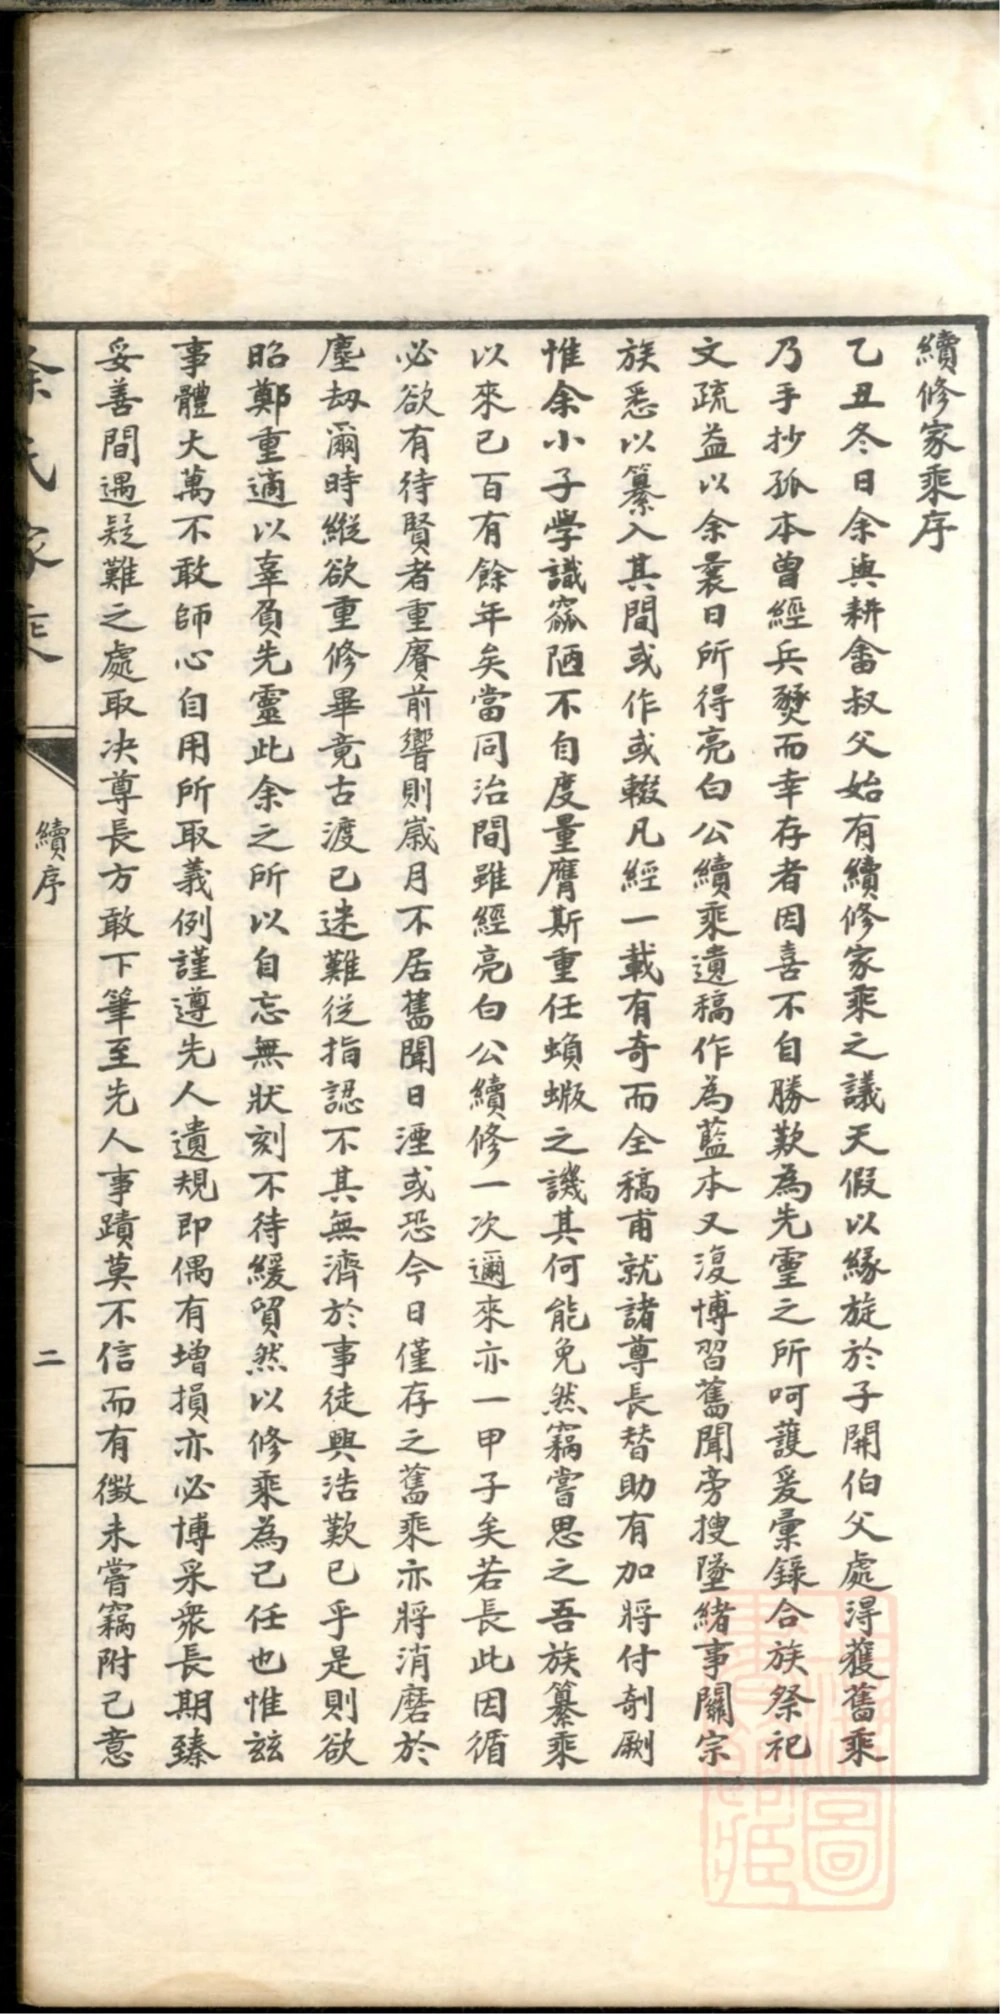 續修家乘序
乙丑冬日余與耕畬叔父始有續修家乘之議天假以緣旋於子開伯父處淂獲舊乘
乃手抄孤本曾經兵燹而幸存者因喜不自勝歎為先靈之所呵護爰彙錄合族祭祀
文疏益以余曩日所得亮白公續乘遺稿作為藍本又復博習舊聞旁搜墜緒事關宗
族悉以纂入其間或作或輟凡經一載有奇而全稿甫就諸尊長替助有加將付剞劂
惟余小子學識窳陋不自度量膺斯重任蝜蝂之譏其何能免然竊嘗思之吾族纂乘
以來已百有餘年矣當同治間雖經亮白公續修一次邇來亦一甲子矣若長此因循
必欲有待賢者重賡前響則嵗月不居舊聞日湮或恐今日僅存之舊乘亦將消磨於
塵刼爾時縱欲重修畢竟古渡已迷難從指認不其無濟於事徒興浩歎已乎是則欲
昭鄭重適以辜負先靈此余之所以自忘無狀刻不待緩貿然以修乘為己任也惟茲
事體大萬不敢師心自用所取義例謹遵先人遺規即偶有增損亦必博采衆長期臻
妥善間遇疑難之處取決尊長方敢下筆至先人事蹟莫不信而有徵未嘗竊附己意
余氏家乘
續序
二